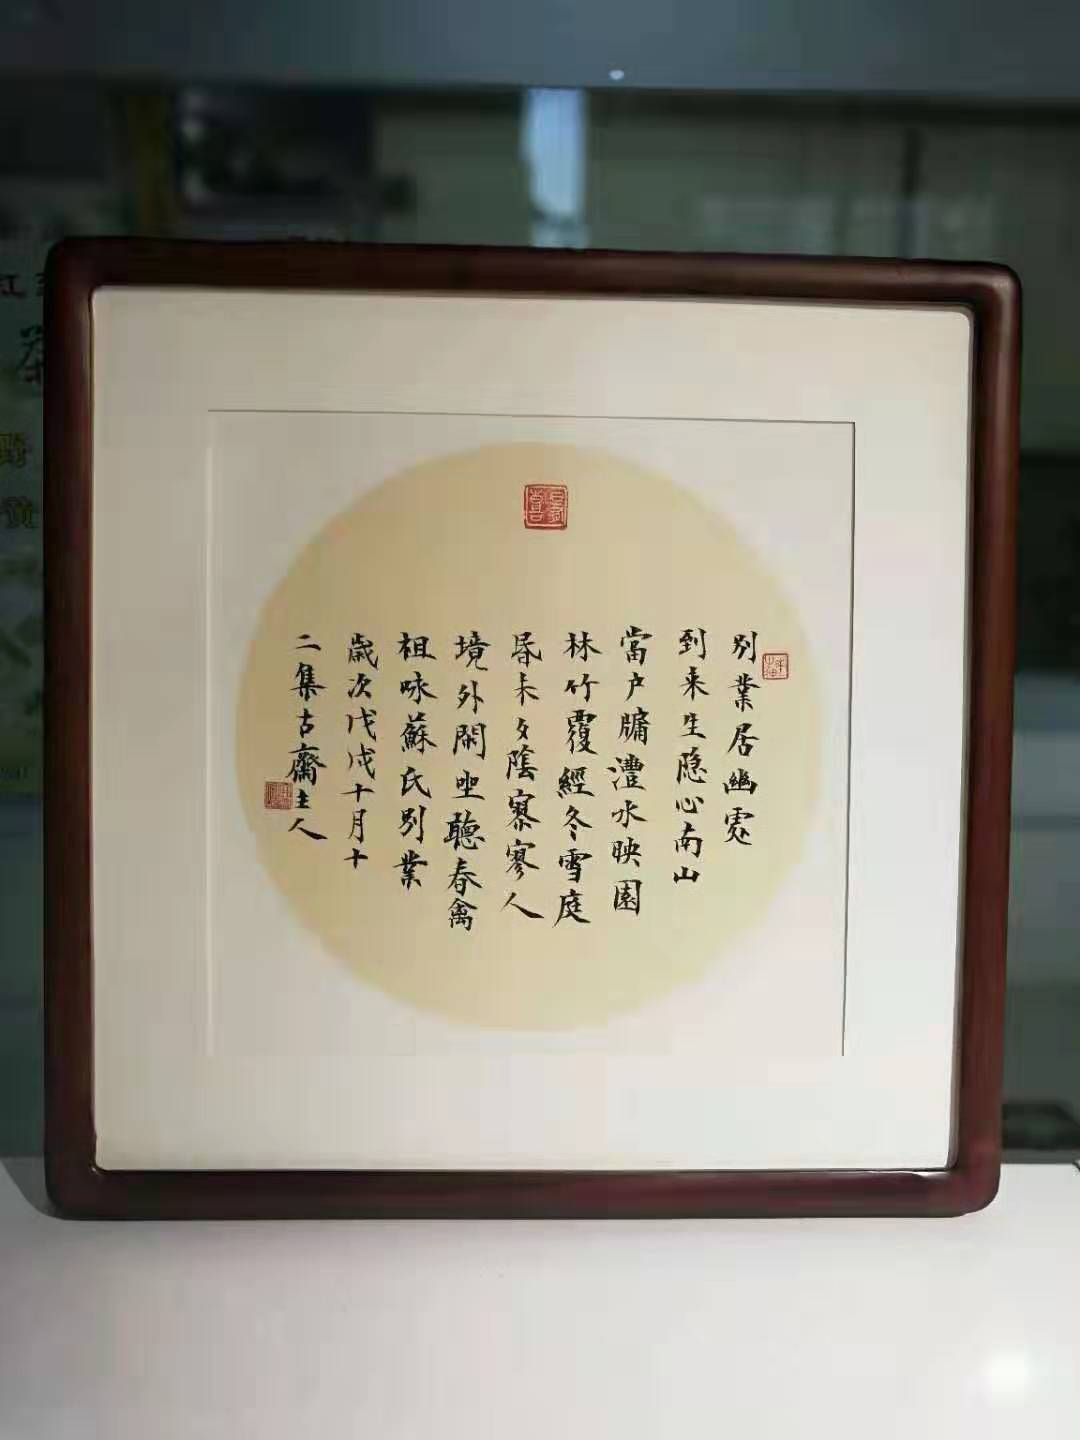 别業居幽處
到来生隐心南山
當户牖灃水映園
林竹覆經冬雪庭
昏未夕陰寥寥人
境外閑坐聽春禽
祖咏蘇氏别業
歲次戊戌十月十
二集古齋主人
茶